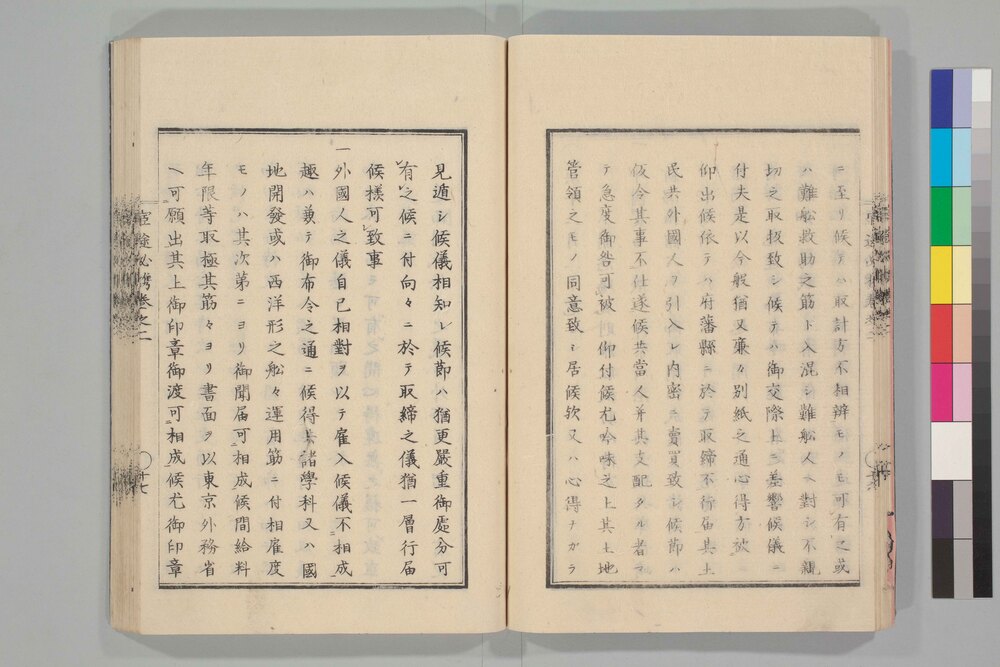 ニ至リ候テハ取計方不相辨モノモ可有之或
ハ難舩救助之筋ト入混シ難舩人ヘ對シ不親
切之取扱致シ候テハ御交際上ニ差響候儀ニ
付夫是以今般猶又廉々別紙之通心得方被
仰出候依テハ府藩縣ニ於テ取締不行屆其上
民共外國人ヲ引入レ内密ニ賣買致シ候節ハ
仮令其事不仕遂候共當人并其支配タル者ニ
テ急度御咎可被 仰付候尤吟味之上其土地
管領之モノ同意致シ居候欤又ハ心得ナガラ
見遁シ候儀相知レ候節ハ猶更嚴重御處分可
有之候ニ付向々ニ於テ取締之儀猶一層行届
候樣可致事
一外國人之儀自己相對ヲ以テ雇入候儀不相成
趣ハ兼テ御布令之通ニ候得共諸學科又ハ國
地開發或ハ西洋形之舩々運用筋ニ付相雇度
モノハ其次第ニヨリ御聞届可相成候間給料
年限等取極其筋々ヨリ書面ヲ以東京外務省
ヘ可願出其上御印章御渡可相成候尤御印章
官途必携巻之二
十七